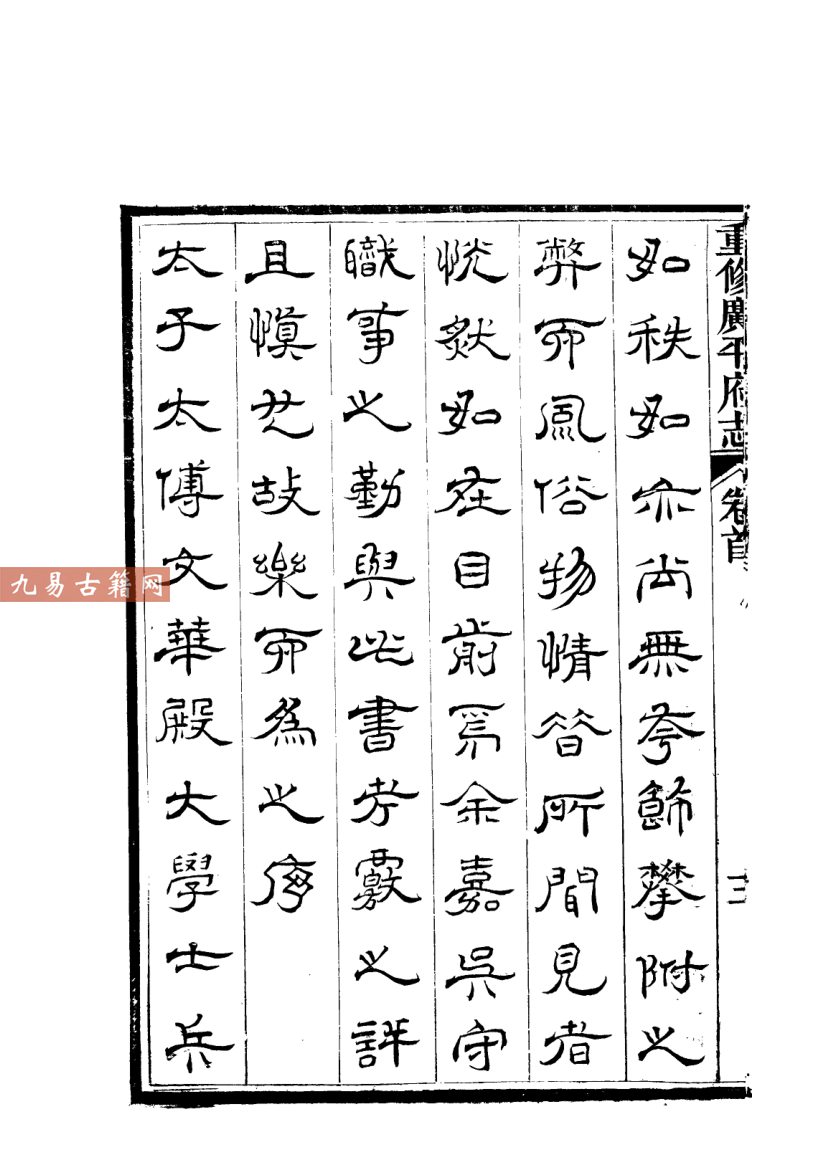 重修廣平府志 卷首
如秩如亦尚無夸飾攀附之
弊而風俗物情昔所聞見者
恍然如在目前焉余嘉吳守
職事之勤與此書考覈之詳
且慎也故樂而爲之序
太子太傅文華殿大學士兵
九易古籍网